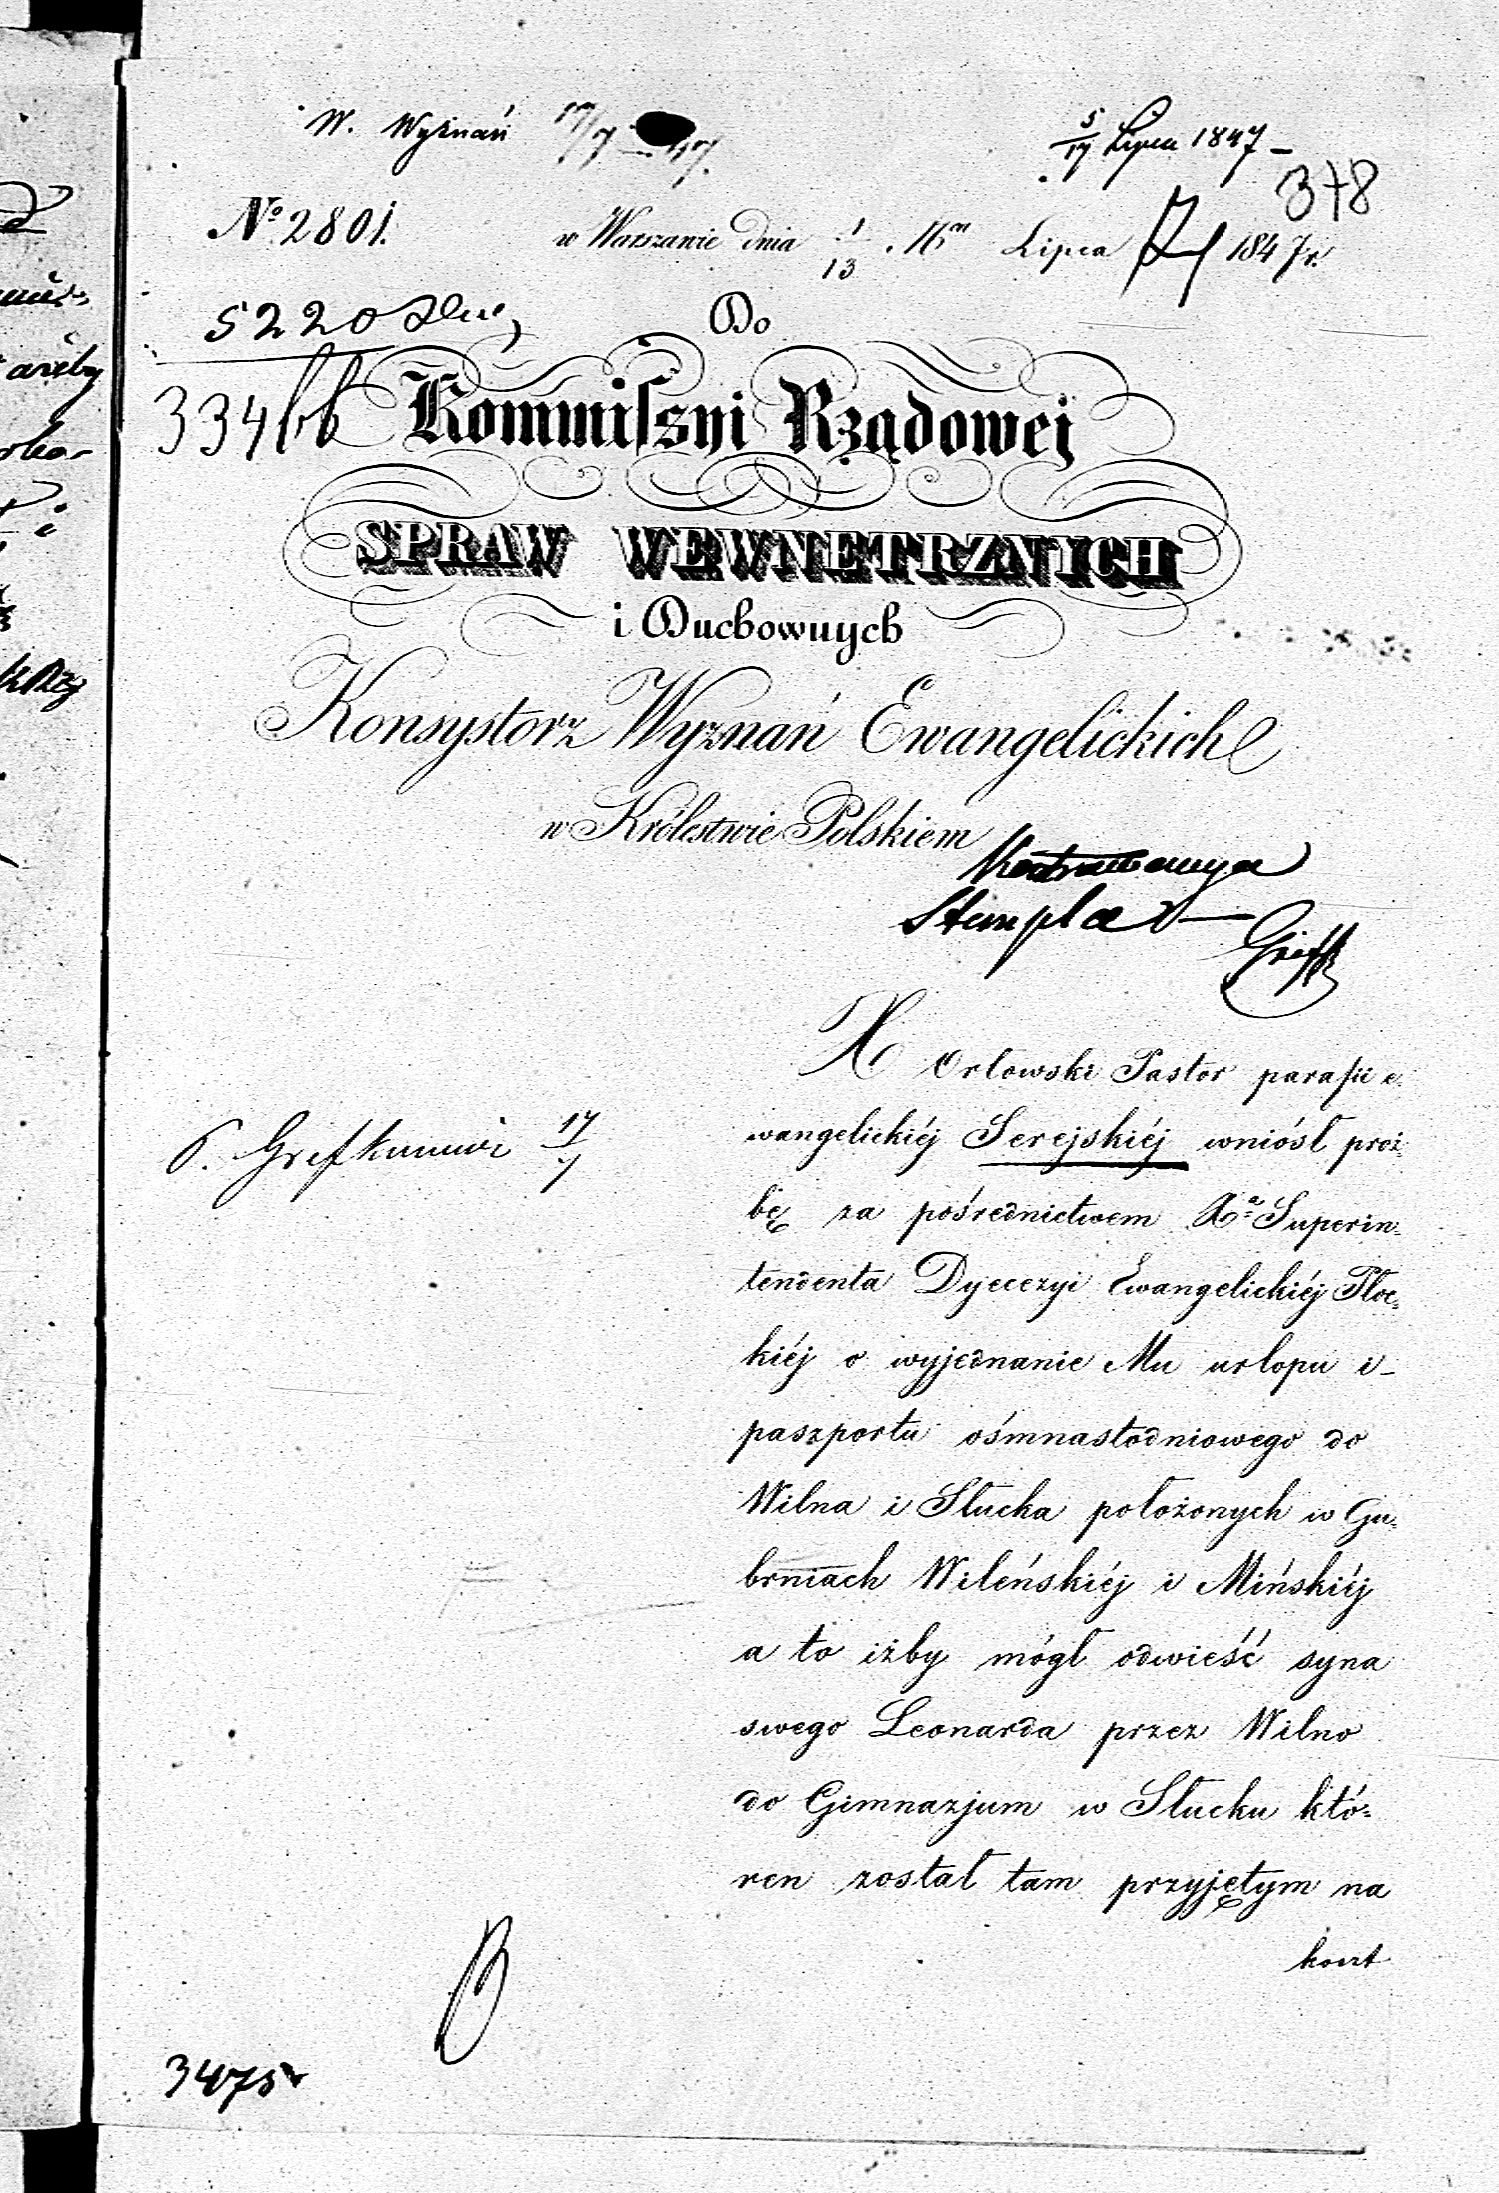 W. Wyznań 17/7 47.
5/17 Lipca 1847 –
378
No. 2801.
w Warszawie dnia 1/13 Lipca 1847 r.
5220
Do
334
Kommissyi Rządowej
SPRAW WEWNETRZNYCH
i Duchownych
Konsystorz Wyznań Ewangelickich
w Królestwie Polskiem
Stempla
X Orłowski Pastor parafii e-
wangelickiéj Serejskiéj wniósł proź-
P. Grefkunowi 17/7
bę za pośrednictwem Xa Superin-
tendenta Dyecezyi Ewangelickiéj Płoc-
kiéj o wyjednanie Mu urlopu i
paszportu ośmnastodniowego do
Wilna i Słucka położonych w Gu-
berniach Wileńskiéj i Mińskiéj
a to iżby mógł odwieść syna
swego Leonarda przez Wilno
do Gimnazjum w Słucku któ-
ren został tam przyjętym na
koszt
3475